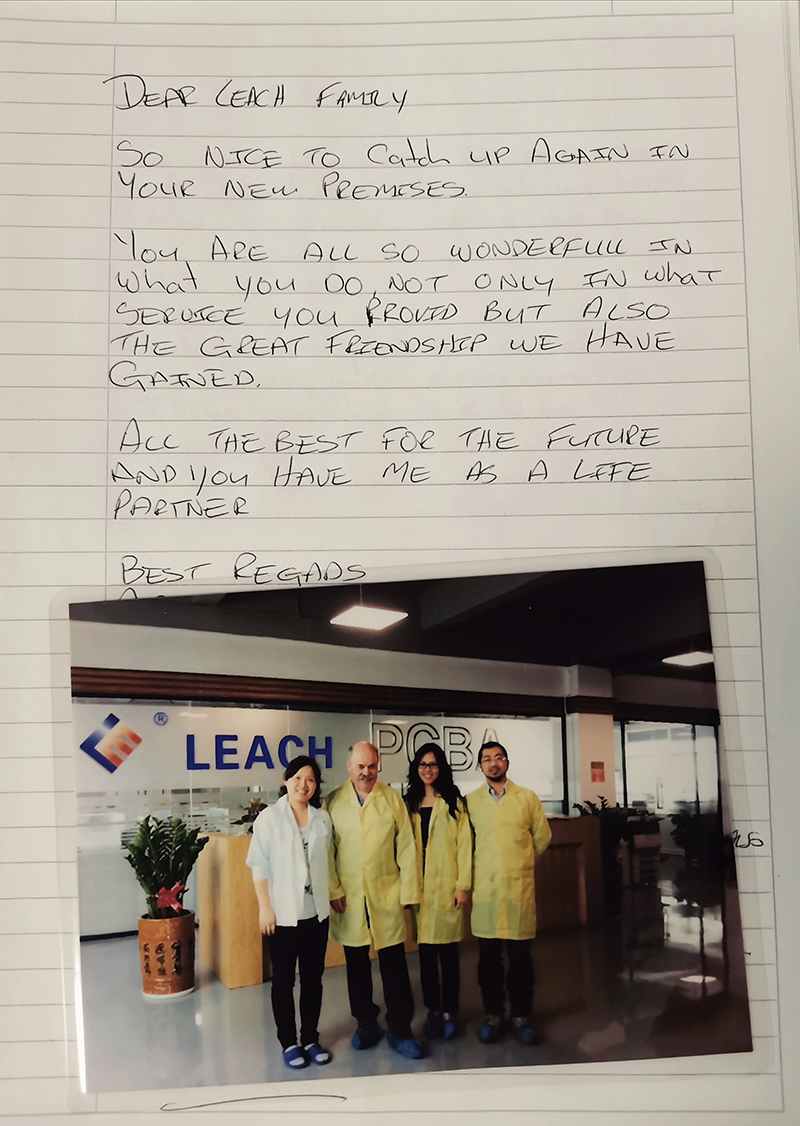 DEAR LEACH FAMILY
SO NICE TO Catch UP AGAIN IN
YOUR NEW PREMISES.
YOU ARE ALL SO WONDERFULL IN
What YOU DO, NOT ONLY IN what
SERVICE YOU PROVID BUT ALSO
THE GREAT FRIENDSHIP WE HAVE
GAINED.
ALL THE BEST FOR THE FUTURE
AND YOU HAVE ME AS A LIFE
PARTNER
BEST REGADS
®
LEACH PCBA